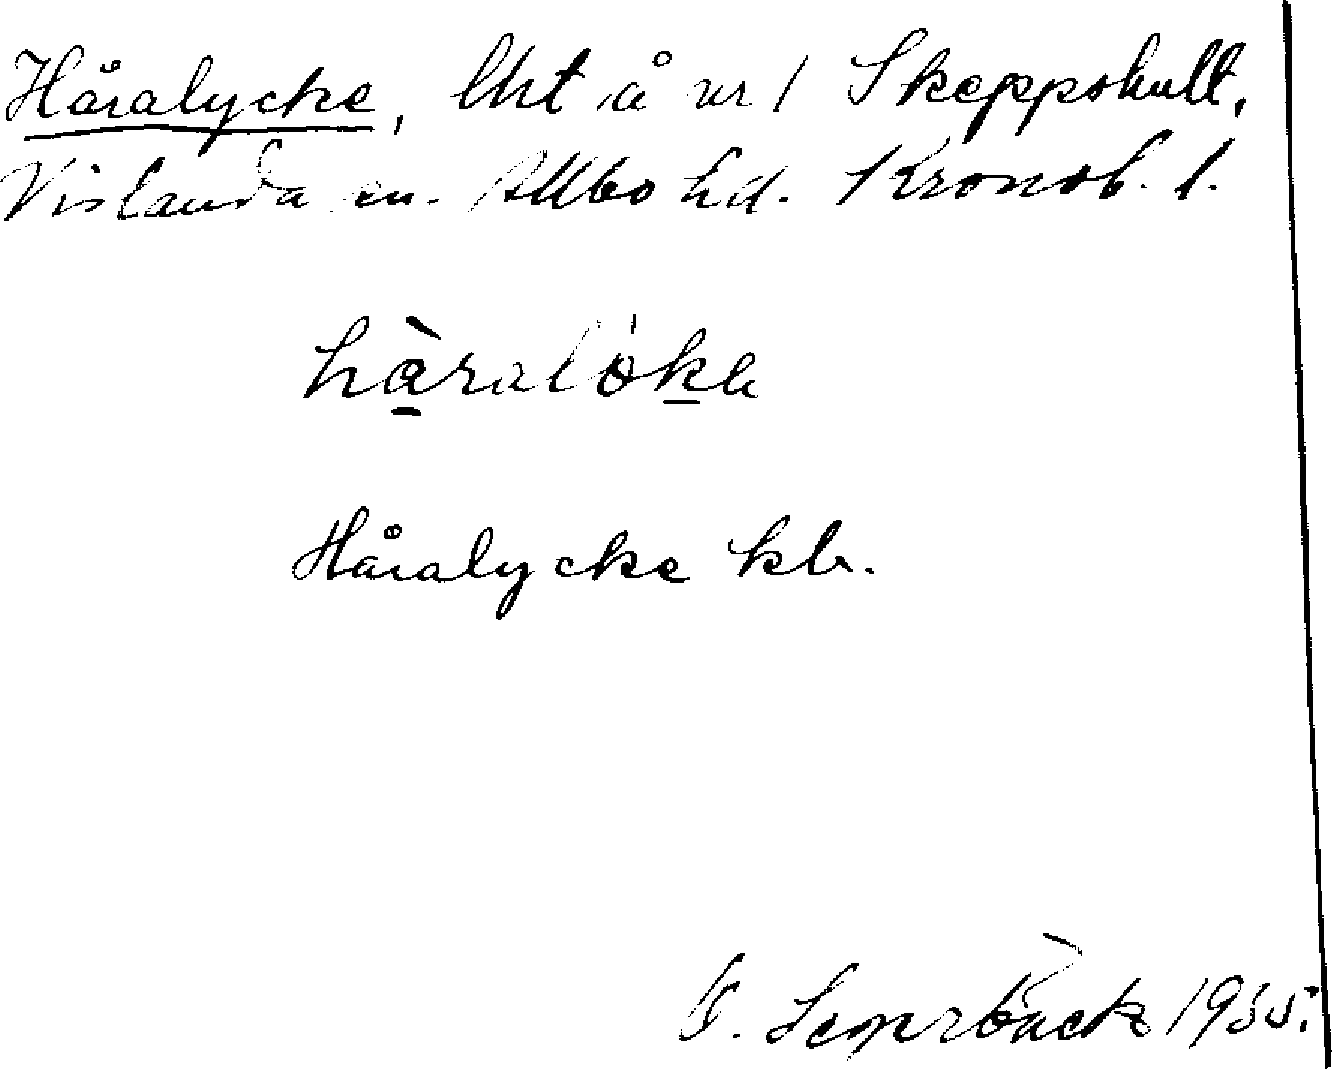 Håralycke, lht å nr 1 Skeppshult,
Vislanda sn. Allbo hd. Kronob. l.
håralökɛ
Håralycke kb.
G. 1935.